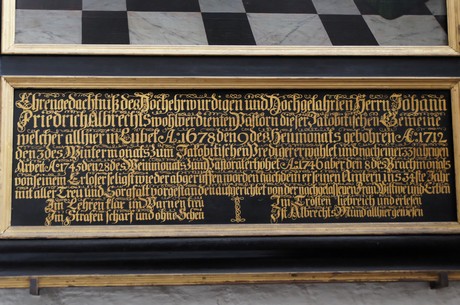 Ehrengedächtniß des Hochehrwürdigen und Hochgelahrten Herrn Johann
Friedrich Albrechts wohlverdienten Pastorn dieser Jacobitischen Gemeine
welcher allhier in Lübek A: 1678 den 9 des Heumonats gebohren A: 1712
den 3 des Weinmonats zum Jacobitischen Prediger erwählet und nach einer 33 jährigen
Arbeit A: 1745 den 28 des Weinmonats zum Pastorat erhöhet A: 1746 aber den 8 des Brachmonats
von seinem Erlöser hinwieder abgeruffen worden nachdem er seinen Ämtern ins 34ste Jahr
mit aller Treu und Sorgfalt vorgestanden aufgerichtet von der nachgelassenen Frau Wittwe und Erben
Im Lehren klar im Warnen treu
Im Trösten liebreich und erlesen
Im Strafen scharf und ohne Scheu
Ist Albrechts Mund allhier gewesen